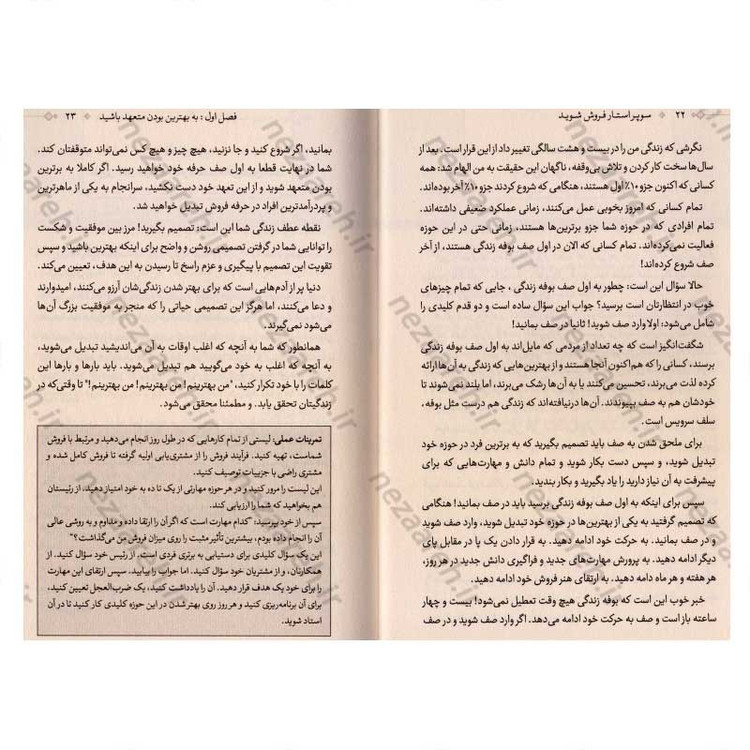 ۲۲ سوپر استار فروش شوید
نگرشی که زندگی من را در بیست و هشت سالگی تغییر داد از این قرار است. بعد از
سال‌ها سخت کار کردن و تلاش بی‌وقفه، ناگهان این حقیقت به من الهام شد: همه
کسانی که اکنون جزو ۱۰٪ اول هستند، هنگامی که شروع کردند جزو ۱۰٪ آخر بوده‌اند.
تمام کسانی که امروز بخوبی عمل می‌کنند، زمانی عملکرد ضعیفی داشته‌اند.
تمام افرادی که در حوزه شما جزو برترین‌ها هستند، زمانی حتی در این حوزه
فعالیت نمی‌کرده‌اند. تمام کسانی که الان در اول صف بوفه زندگی هستند، از آخر
صف شروع کرده‌اند!
حالا سؤال این است: چطور به اول صف بوفه زندگی ، جایی که تمام چیزهای
خوب در انتظارتان است برسید؟ جواب این سؤال ساده است و دو قدم کلیدی را
شامل می‌شود: اولا وارد صف شوید! ثانیا در صف بمانید!
شگفت‌انگیز است که چه تعداد از مردمی که مایل‌اند به اول صف بوفه زندگی
برسند، کسانی را که هم‌اکنون آنجا هستند و از بهترین‌هایی که زندگی به آن‌ها ارائه
کرده لذت می‌برند، تحسین می‌کنند یا به آن‌ها رشک می‌برند، اما بلند نمی‌شوند تا
خودشان هم به صف بپیوندند. آن‌ها درنیافته‌اند که زندگی هم درست مثل بوفه،
سلف سرویس است.
برای ملحق شدن به صف باید تصمیم بگیرید که به برترین فرد در حوزه خود
تبدیل شوید، و سپس دست بکار شوید و تمام دانش و مهارت‌هایی که برای
پیشرفت به آن نیاز دارید را یاد بگیرید و بکار بندید.
سپس برای اینکه به اول صف بوفه زندگی برسید باید در صف بمانید! هنگامی
که تصمیم گرفتید به یکی از بهترین‌ها در حوزه خود تبدیل شوید، وارد صف شوید
و در صف بمانید. به حرکت خود ادامه دهید. به قرار دادن یک پا در مقابل پای
دیگر ادامه دهید. به پرورش مهارت‌های جدید و فراگیری دانش جدید در هر روز،
هر هفته و هر ماه ادامه دهید. به ارتقای هنر فروش خود ادامه دهید.
خبر خوب این است که بوفه زندگی هیچ وقت تعطیل نمی‌شود! بیست و چهار
ساعته باز است و صف به حرکت خود ادامه می‌دهد. اگر وارد صف شوید و در صف
فصل اول : به بهترین بودن متعهد باشید ۲۳
بمانید، اگر شروع کنید و جا نزنید، هیچ چیز و هیچ کس نمی‌تواند متوقفتان کند.
شما در نهایت قطعا به اول صف حرفه خود خواهید رسید. اگر کاملا به برترین
بودن متعهد شوید و از این تعهد خود دست نکشید، سرانجام به یکی از ماهرترین
و پردرآمدترین افراد در حرفه فروش تبدیل خواهید شد.
نقطه عطف زندگی شما این است: تصمیم بگیرید! مرز بین موفقیت و شکست
را توانایی شما در گرفتن تصمیمی روشن و واضح برای اینکه بهترین باشید و سپس
تقویت این تصمیم با پیگیری و عزم راسخ تا رسیدن به این هدف، تعیین می‌کند.
دنیا پر از آدم‌هایی است که برای بهتر شدن زندگی‌شان آرزو می‌کنند، امیدوارند
و دعا می‌کنند، اما هرگز این تصمیمی حیاتی را که منجر به موفقیت بزرگ آن‌ها
می‌شود نمی‌گیرند.
همانطور که شما به آنچه که اغلب اوقات به آن می‌اندیشید تبدیل می‌شوید،
به آنچه که اغلب به خود می‌گویید هم تبدیل می‌شوید. باید بارها و بارها این
کلمات را با خود تکرار کنید، "من بهترینم! من بهترینم! من بهترینم!" تا وقتی‌که در
زندگیتان تحقق یابد. و مطمئنا محقق می‌شود.
تمرینات عملی: لیستی از تمام کارهایی که در طول روز انجام می‌دهید و مرتبط با فروش
شماست، تهیه کنید. فرآیند فروش را از مشتری‌یابی اولیه گرفته تا فروش کامل شده و
مشتری راضی با جزییات توصیف کنید.
این لیست را مرور کنید و در هر حوزه مهارتی از یک تا ده به خود امتیاز دهید. از رئیستان
هم بخواهید که شما را ارزیابی کند.
سپس از خود بپرسید: "کدام مهارت است که اگر آن را ارتقا داده و مداوم و به روشی عالی
آن را انجام داده بودم، بیشترین تأثیر مثبت را روی میزان فروش من می‌گذاشت؟"
این یک سؤال کلیدی برای دستیابی به برتری فردی است. از رئیس خود سؤال کنید. از
همکارتان، و از مشتریان خود سؤال کنید. اما جواب را بیابید. سپس ارتقای این مهارت
را برای خود یک هدف قرار دهید. آن را یادداشت کنید، یک ضرب‌العجل تعیین کنید،
برای آن برنامه‌ریزی کنید و هر روز روی بهتر شدن در این حوزه کلیدی کار کنید تا در آن
استاد شوید.
nezaafeh.ir